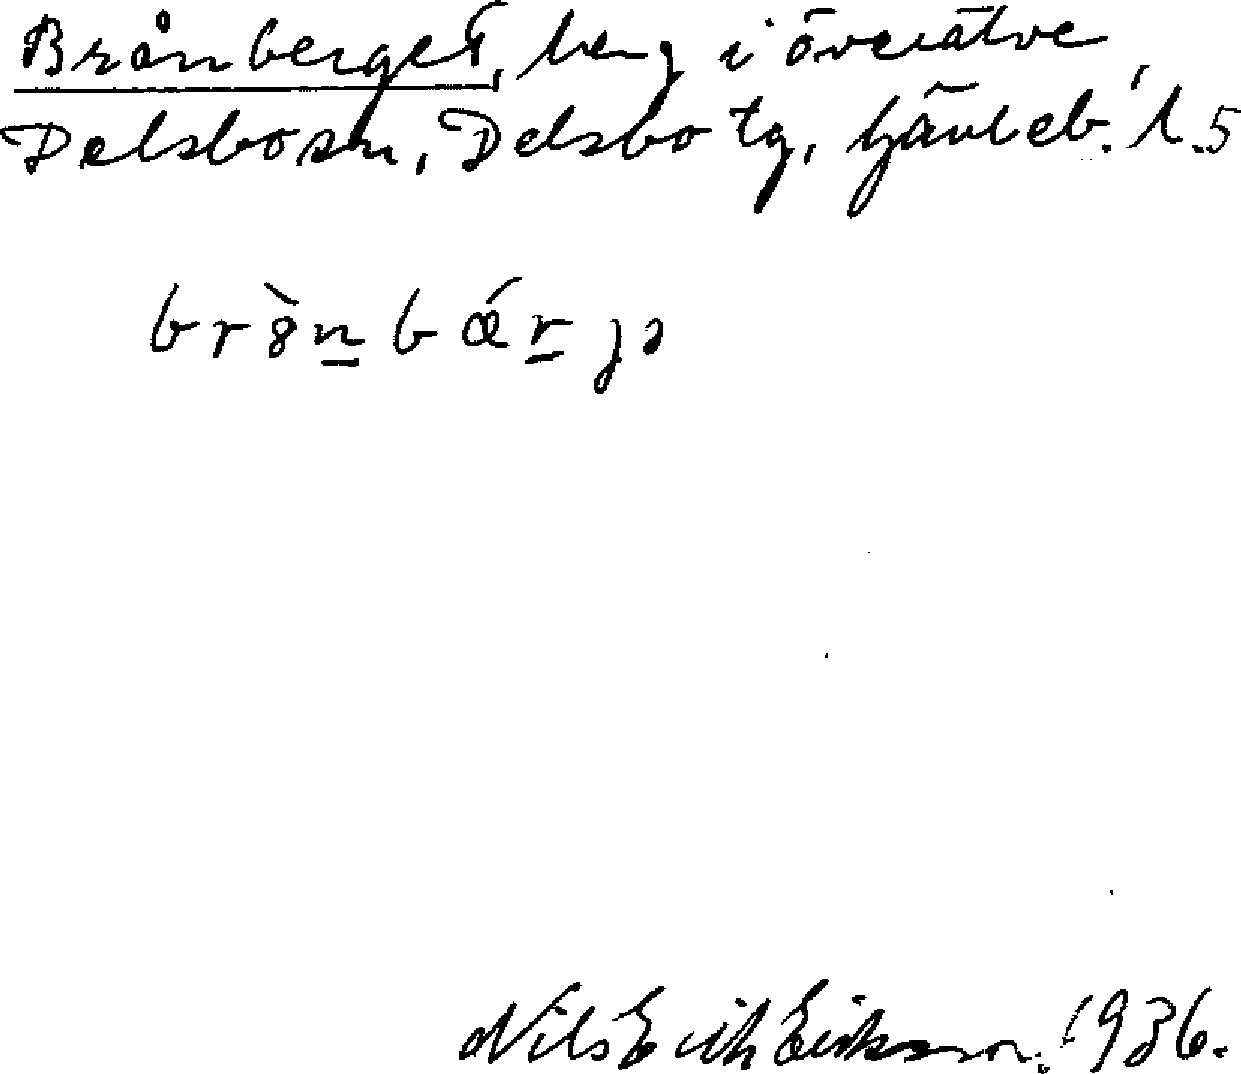 Brånberget, berg i överälve,
Delsbo sn, Delsbo tg, Gävleb. l. 5
brò̤n bǽr jə
Nils Erik Eriksson. 1936.